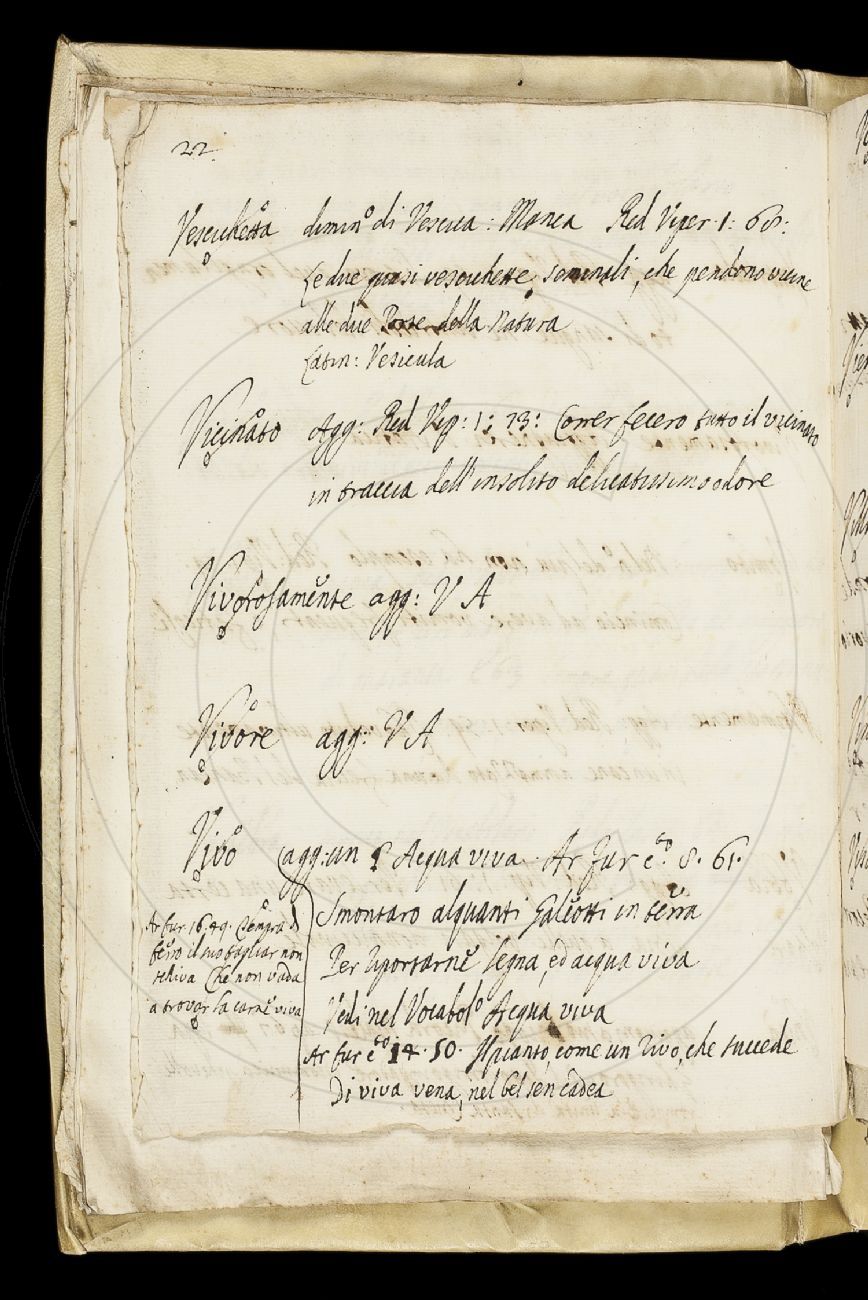 22.
Vescichetta dimin.o di Vescica: Manca Red Viper. 1: 68:
Le due quasi vescichette seminali, che pendono vicine
alle due Porte della Natura
Latin: Vesicula
Vicinato Agg: Red Vip: 1: 73: Correr fecero tutto il vicinato
in traccia dell'insolito delicatissimo odore
Vivorosamente agg: V A
Vivore agg: V A
Vivo agg: un § Acqua viva. Ar fur c.to 8. 61.
Smontaro alquanti Galeotti in terra
Per riportarne legna, ed acqua viva
Vedi nel Vocabol.o Acqua viva
Ar fur c.to 14. 50. Il pianto, come un rivo, che succede
Di viva vena, nel bel sen cadea
Ar fur. 16. 49. Sempra di
ferro il suo tagliar non
schiva Che non vada
a trovar la carne viva